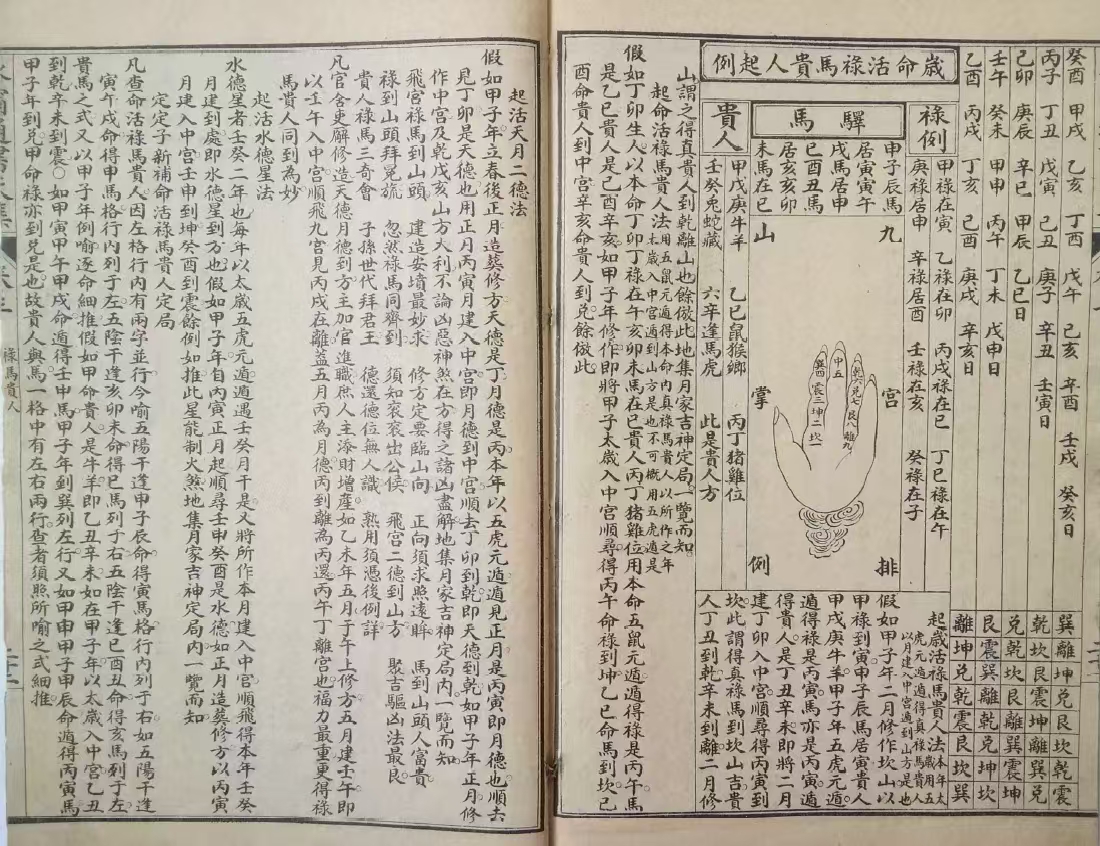 癸酉 甲戌 乙亥 丁酉 戊午 己亥 辛酉 壬戌 癸亥日
丙子 丁丑 戊寅 己丑 庚子 辛丑 壬寅日
己卯 庚辰 辛巳 甲辰 乙巳日
壬午 癸未 甲申 丙午 丁未 戊申日
乙酉 丙戌 丁亥 己酉 庚戌 辛亥日
巽離坤兌艮坎乾震
乾坎艮震坤離巽兌
兌乾坎艮離巽震坤
艮震巽離乾兌坤坎
離坤兌乾震艮坎巽
歲命活祿馬貴人起例
祿例
甲祿在寅 乙祿在卯 丙戊祿在巳 丁己祿在午
庚祿居申 辛祿居酉 壬祿在亥 癸祿在子
驛馬
申子辰馬
居寅寅午
戌馬居申
巳酉丑馬
居亥亥卯
未馬在巳
貴人
甲戊庚牛羊 乙己鼠猴鄉 丙丁猪雞位
壬癸兔蛇藏 六辛逢馬虎 此是貴人方
九宮排山掌例
中五
乾六
兌七
艮八
離九
巽四
震三
坤二
坎一
起歲活祿馬貴人法
歲用五虎元遁遁得真祿馬貴人
以月建入中宮遁到山方是也
假如甲子年二月修作坎山以
甲祿到寅甲子辰馬居寅貴人
甲戊庚牛羊甲子年五虎元遁
遁得祿是丙寅馬亦是丙寅遁
得貴人是丁丑辛未即將二月
建丁卯入中宮順尋得丙寅到
坎此謂得真祿馬到坎山吉貴
人丁丑到乾辛未到離二月修
山謂之得真貴人到乾離山也餘倣此地集月家吉神定局一覽而知
起命活祿馬貴人法
用五鼠元遁得本命內真祿馬貴人以所作之年
太歲入中宮遁到山方是也不可概用五虎遁是
假如丁卯生人以本命丁卯丁祿在午亥卯未馬在巳貴人丙丁猪雞位用本命五鼠元遁遁得祿是丙午馬
是乙巳貴人是己酉辛亥如甲子年修作即將甲子太歲入中宮順尋得丙午命祿到坤乙巳命馬到坎己
酉命貴人到中宮辛亥命貴人到兌餘倣此
起活天月二德法
假如甲子年立春後正月造葬修方天德是丁月德是丙本年以五虎元遁遁見正月是丙寅即月德也順去
見丁卯是天德也用正月丙寅月建入中宮即月德到中宮順去丁卯到乾即天德到乾如甲子年正月修
作中宮及乾戌亥山方大利不論凶惡神煞在方得之諸凶盡解地集月家吉神定局內一覽而知
飛宮祿馬到山頭 建造安墳最妙求 修方定要臨山向 正向須求照遠眸 馬到山頭人富貴
祿到山頭拜冕旒 忽然祿馬同齊到 須知衮衮出公侯 飛宮二德到山方 聚吉驅凶法最良
貴人祿馬三奇會 子孫世代拜君王 德還德位無人識 熟用須憑後例詳
凡官舍吏廨修造天德月德到方主加官進職庶人主添財增產如乙未年五月子午上修方五月建壬午即
以壬午入中宮順飛九宮見丙戌在離葢五月丙為月德丙到離為丙還丙午丁離宮也福力最重更得祿
馬貴人同到為妙
起活水德星法
水德星者壬癸二年也每年以太歲五虎元遁遁遇壬癸月干是又將所作本月建入中宮順飛得本年壬癸
月建到處即水德星到方也假如甲子年自丙寅正月起順尋壬申癸酉是水德如正月造葬修方以丙寅
月建入中宮壬申到坤癸酉到震餘例如推此星能制火煞地集月家吉神定局內一覽而知
定定子新補命活祿馬貴人定局
凡查命活祿馬貴人因左格行內有兩字並行今喻五陽干逢申子辰命得寅馬格行內列于右如五陽干逢
寅午戌命得申馬格行內列于左五陰干逢亥卯未命得巳馬列于右五陰干逢巳酉丑命得亥馬列于左
貴馬之式又以甲子年例喻逐命細推假如甲命貴人是牛羊即乙丑辛未如在甲子年以太歲入中宮乙丑
到乾辛未到震○如甲寅甲午甲戌命遁得壬申馬甲子年到巽列左行又如甲申甲子甲辰命遁得丙寅馬
甲子年到兌甲命祿亦到兌是也故貴人與馬一格中有左右兩行查者須照所喻之式細推
祿馬貴人